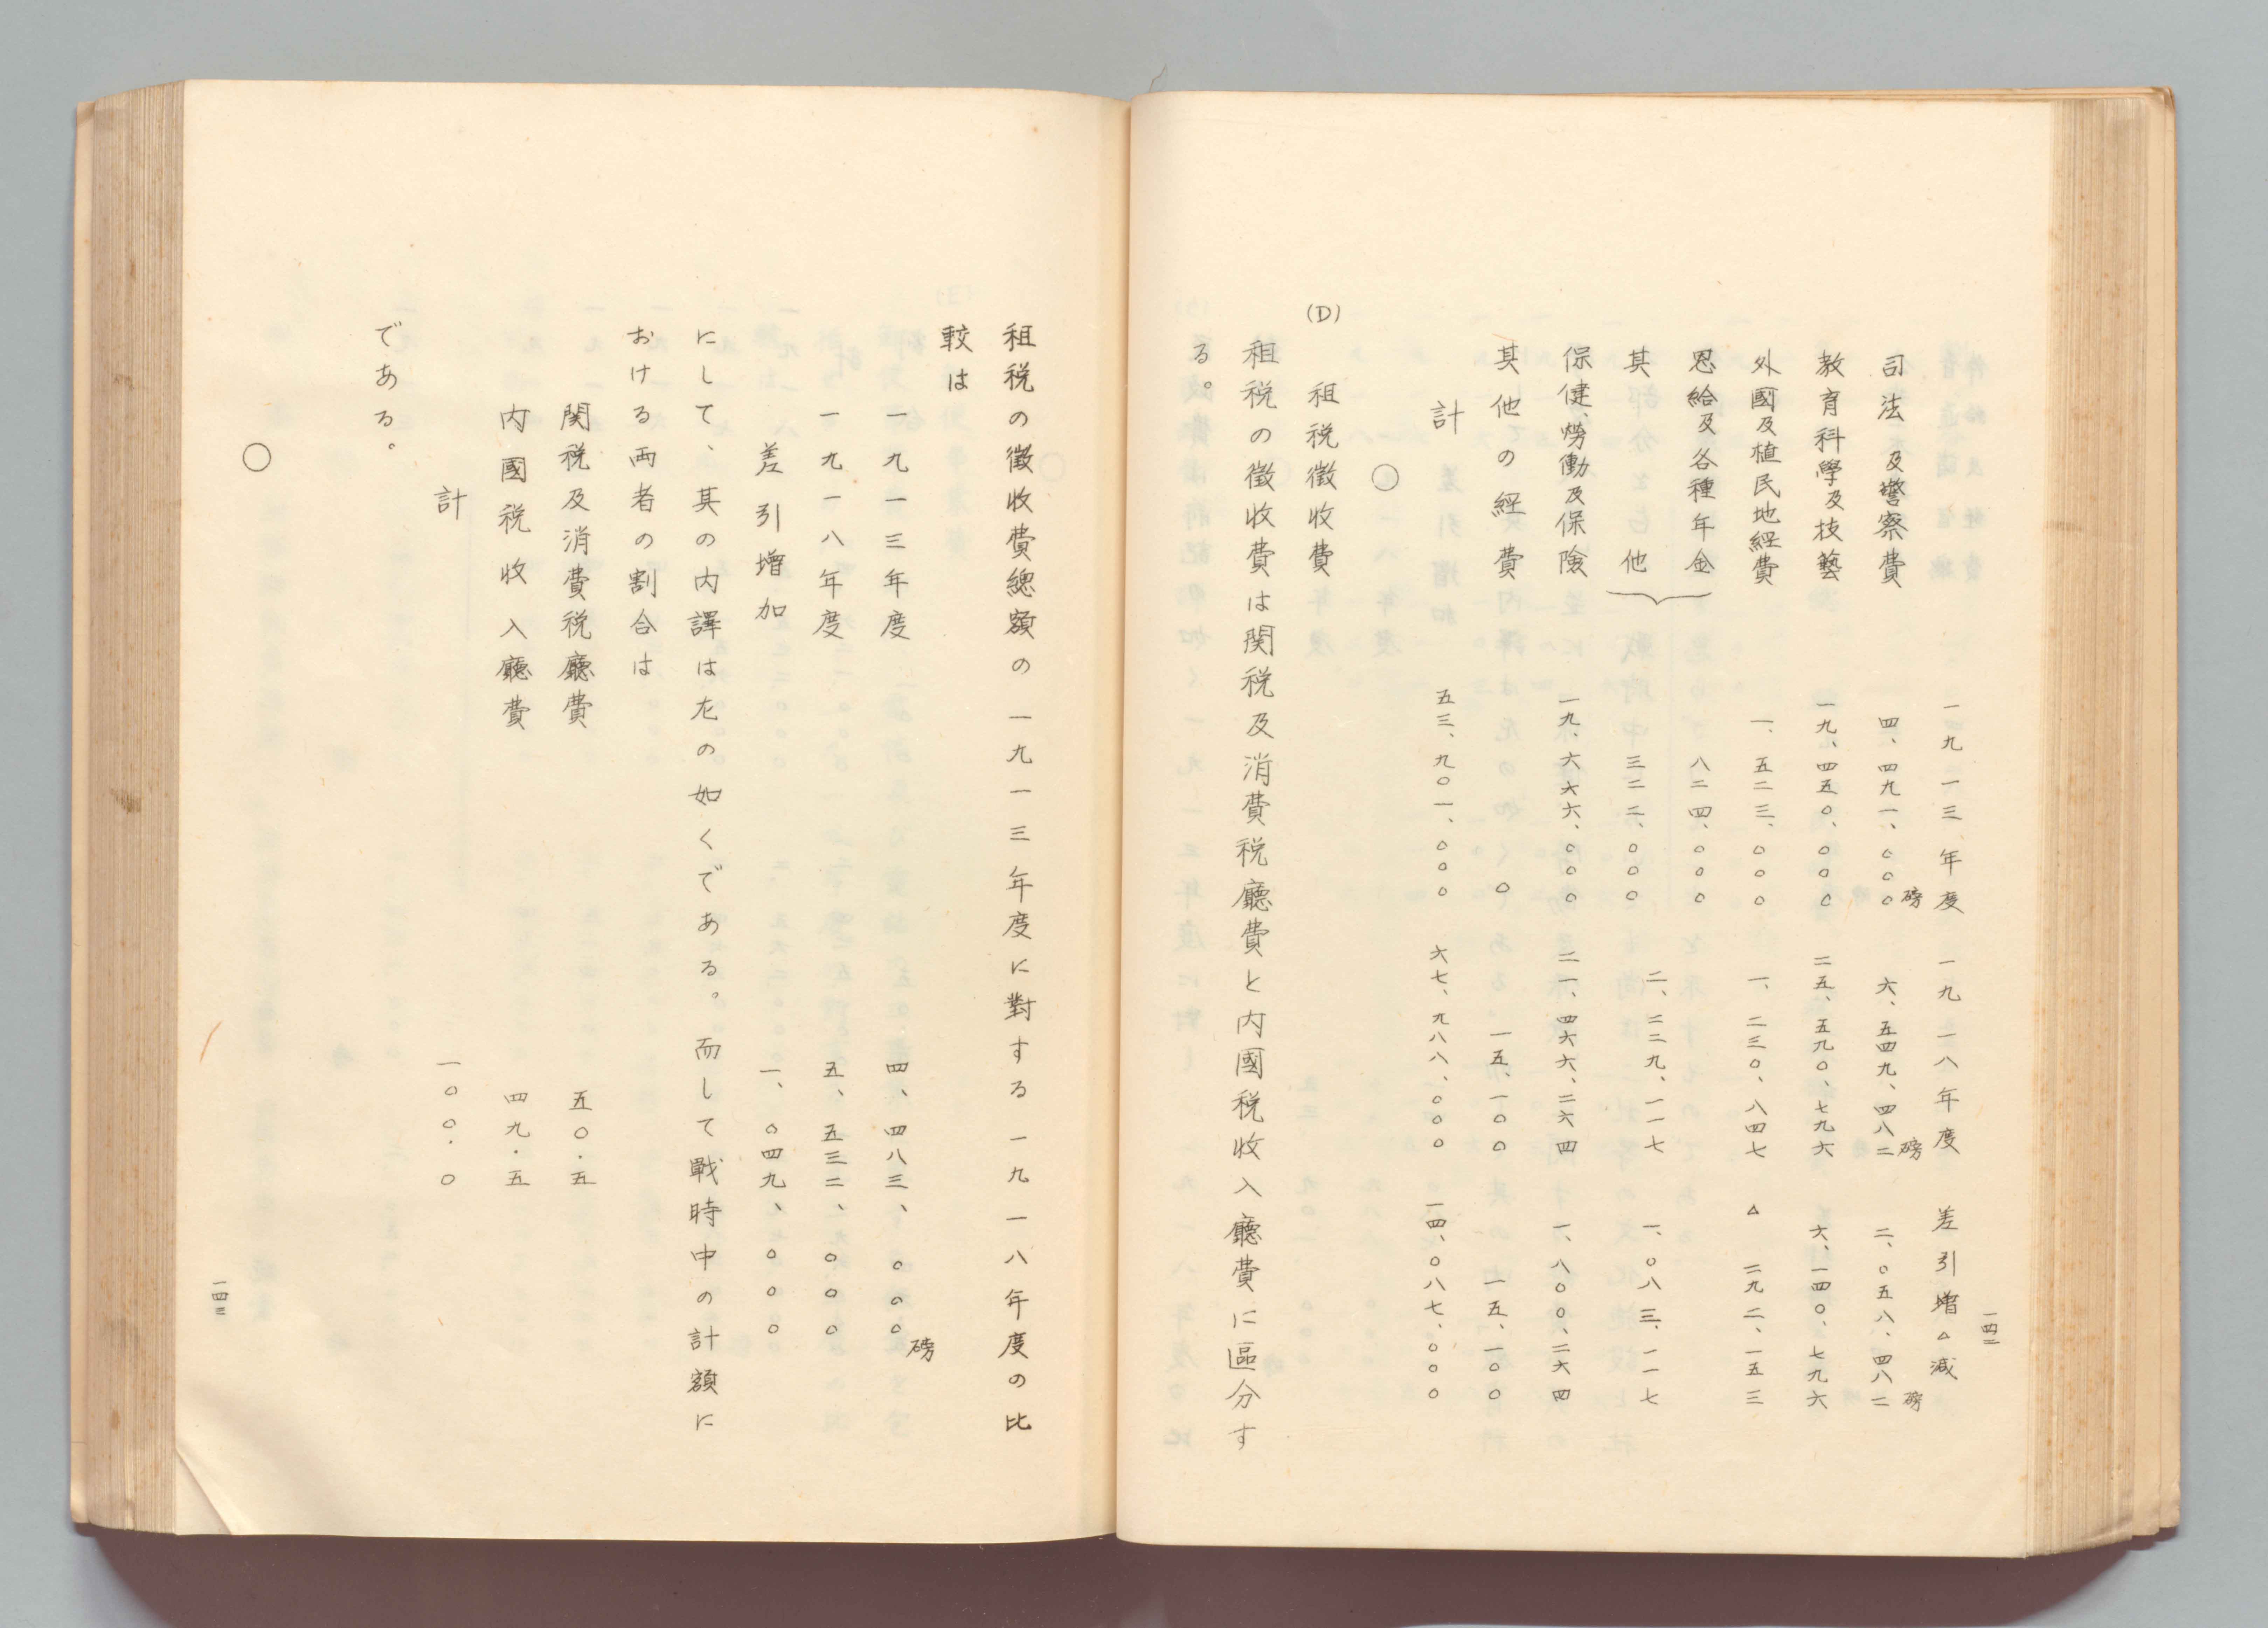 一四二
一九一三年度　一九一八年度　差引増△減
司法及警察費　四、四九一、〇〇〇磅　六、五四九、四八二磅　二、〇五八、四八二磅
教育科學及技藝　一九、四五〇、〇〇〇　二五、五九〇、七九六　六、一四〇、七九六
外國及植民地經費　一、五二三、〇〇〇　一、二三〇、八四七　△　二九二、一五三
恩給及各種年金　八二四、〇〇〇
其他　三二二、〇〇〇　二、二二九、一一七　一、〇八三、一一七
保健、勞働及保險　一九、六六六、〇〇〇　二一、四六六、二六四　一、八〇〇、二六四
其他の経費　〇　一五、一〇〇　一五、一〇〇
計　五三、九〇一、〇〇〇　六七、九八八、〇〇〇　一四、〇八七、〇〇〇
〇
(D)　租税徴收費
租税の徴收費は関税及消費税廳費と内國税收入廳費に區分す
る。
租税の徴收費總額の一九一三年度に對する一九一八年度の比
較は
一九一三年度　四、四八三、〇〇〇磅
一九一八年度　五、五三二、〇〇〇
差引増加　一、〇四九、〇〇〇
にして、其の内譯は左の如くである。而して戰時中の計額に
おける両者の割合は
関税及消費税廳費　五〇・五
内國税收入廳費　四九・五
計　一〇〇・〇
である。
〇
一四三